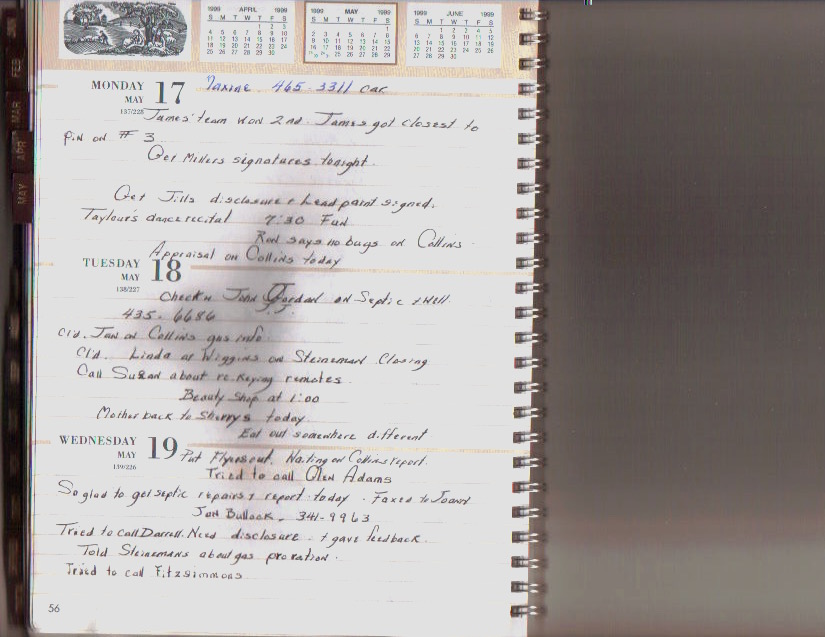 1999 APRIL 1999
S M T W T F S
1 2 3
4 5 6 7 8 9 10
11 12 13 14 15 16 17
18 19 20 21 22 23 24
25 26 27 28 29 30
1999 MAY 1999
S M T W T F S
1
2 3 4 5 6 7 8
9 10 11 12 13 14 15
16 17 18 19 20 21 22
25 26 27 28 29
1999 JUNE 1999
S M T W T F S
1 2 3 4 5
6 7 8 9 10 11 12
13 14 15 16 17 18 19
20 21 22 23 24 25 26
27 28 29 30
FEB
MAR
APR
MAY
MONDAY
MAY 17
137/228
Maxine 465-3311 car
James' team won 2nd. James got closest to
pin on # 3
Get Millers signatures tonight.
Get Jills disclosure & lead paint signed.
Taylour's dance recital 7:30 Fun
Ron says no bugs on Collins
Appraisal on Collins today
TUESDAY
MAY 18
138/227
Check w John Jordan on Septic & Well.
J.J.
435-6686
Cl'd. Jan on Collins gas info
Cl'd. Linda at Wiggins on Steineman Closing
Call Susan about re-keying remotes
Beauty Shop at 1:00
Mother back to Sherrys today.
Eat out somewhere different
WEDNESDAY
MAY 19
139/226
Put Flyers out. Waiting on Collins report.
Tried to call Glen Adams
So glad to get septic repairs & report today. Faxed to Joann
Jan Bullock - 341-9963
Tried to call Darrell. Need disclosure - & gave feedback.
Told Steinemans about gas proration.
Tried to call Fitzsimmons
56